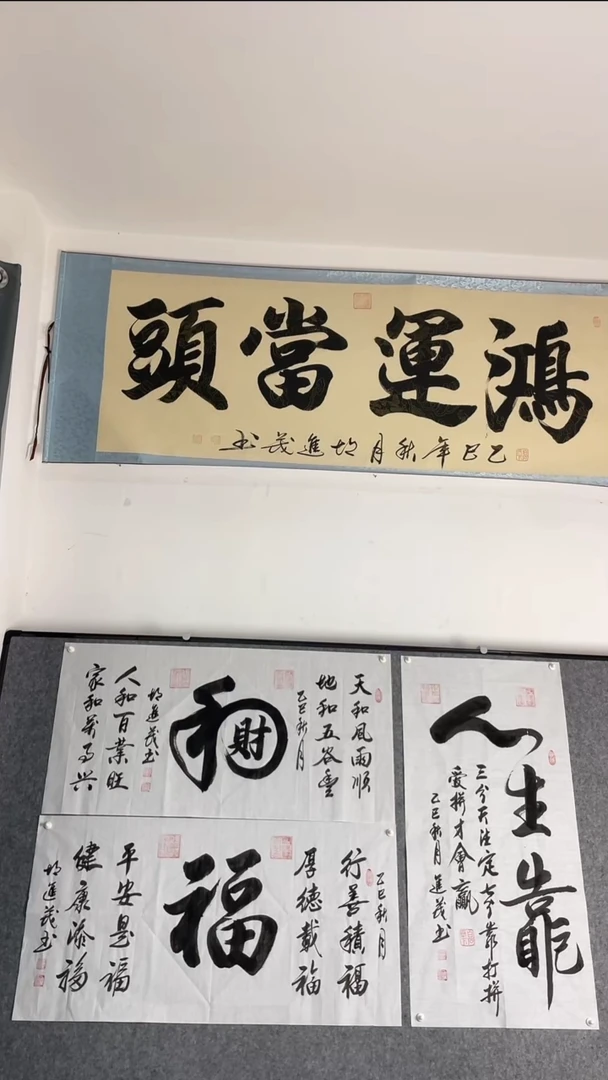 鴻運當頭
乙巳年秋月胡進茂书
天和風雨順
地和五谷豐
乙巳秋月
和
財
胡進茂书
人和百業旺
家和萬事兴
乙巳秋月
行善積福
厚德載福
福
平安是福
健康添福
胡進茂书
人生靠
三分天注定七分靠打拼
愛拼才會贏
乙巳秋月進茂书